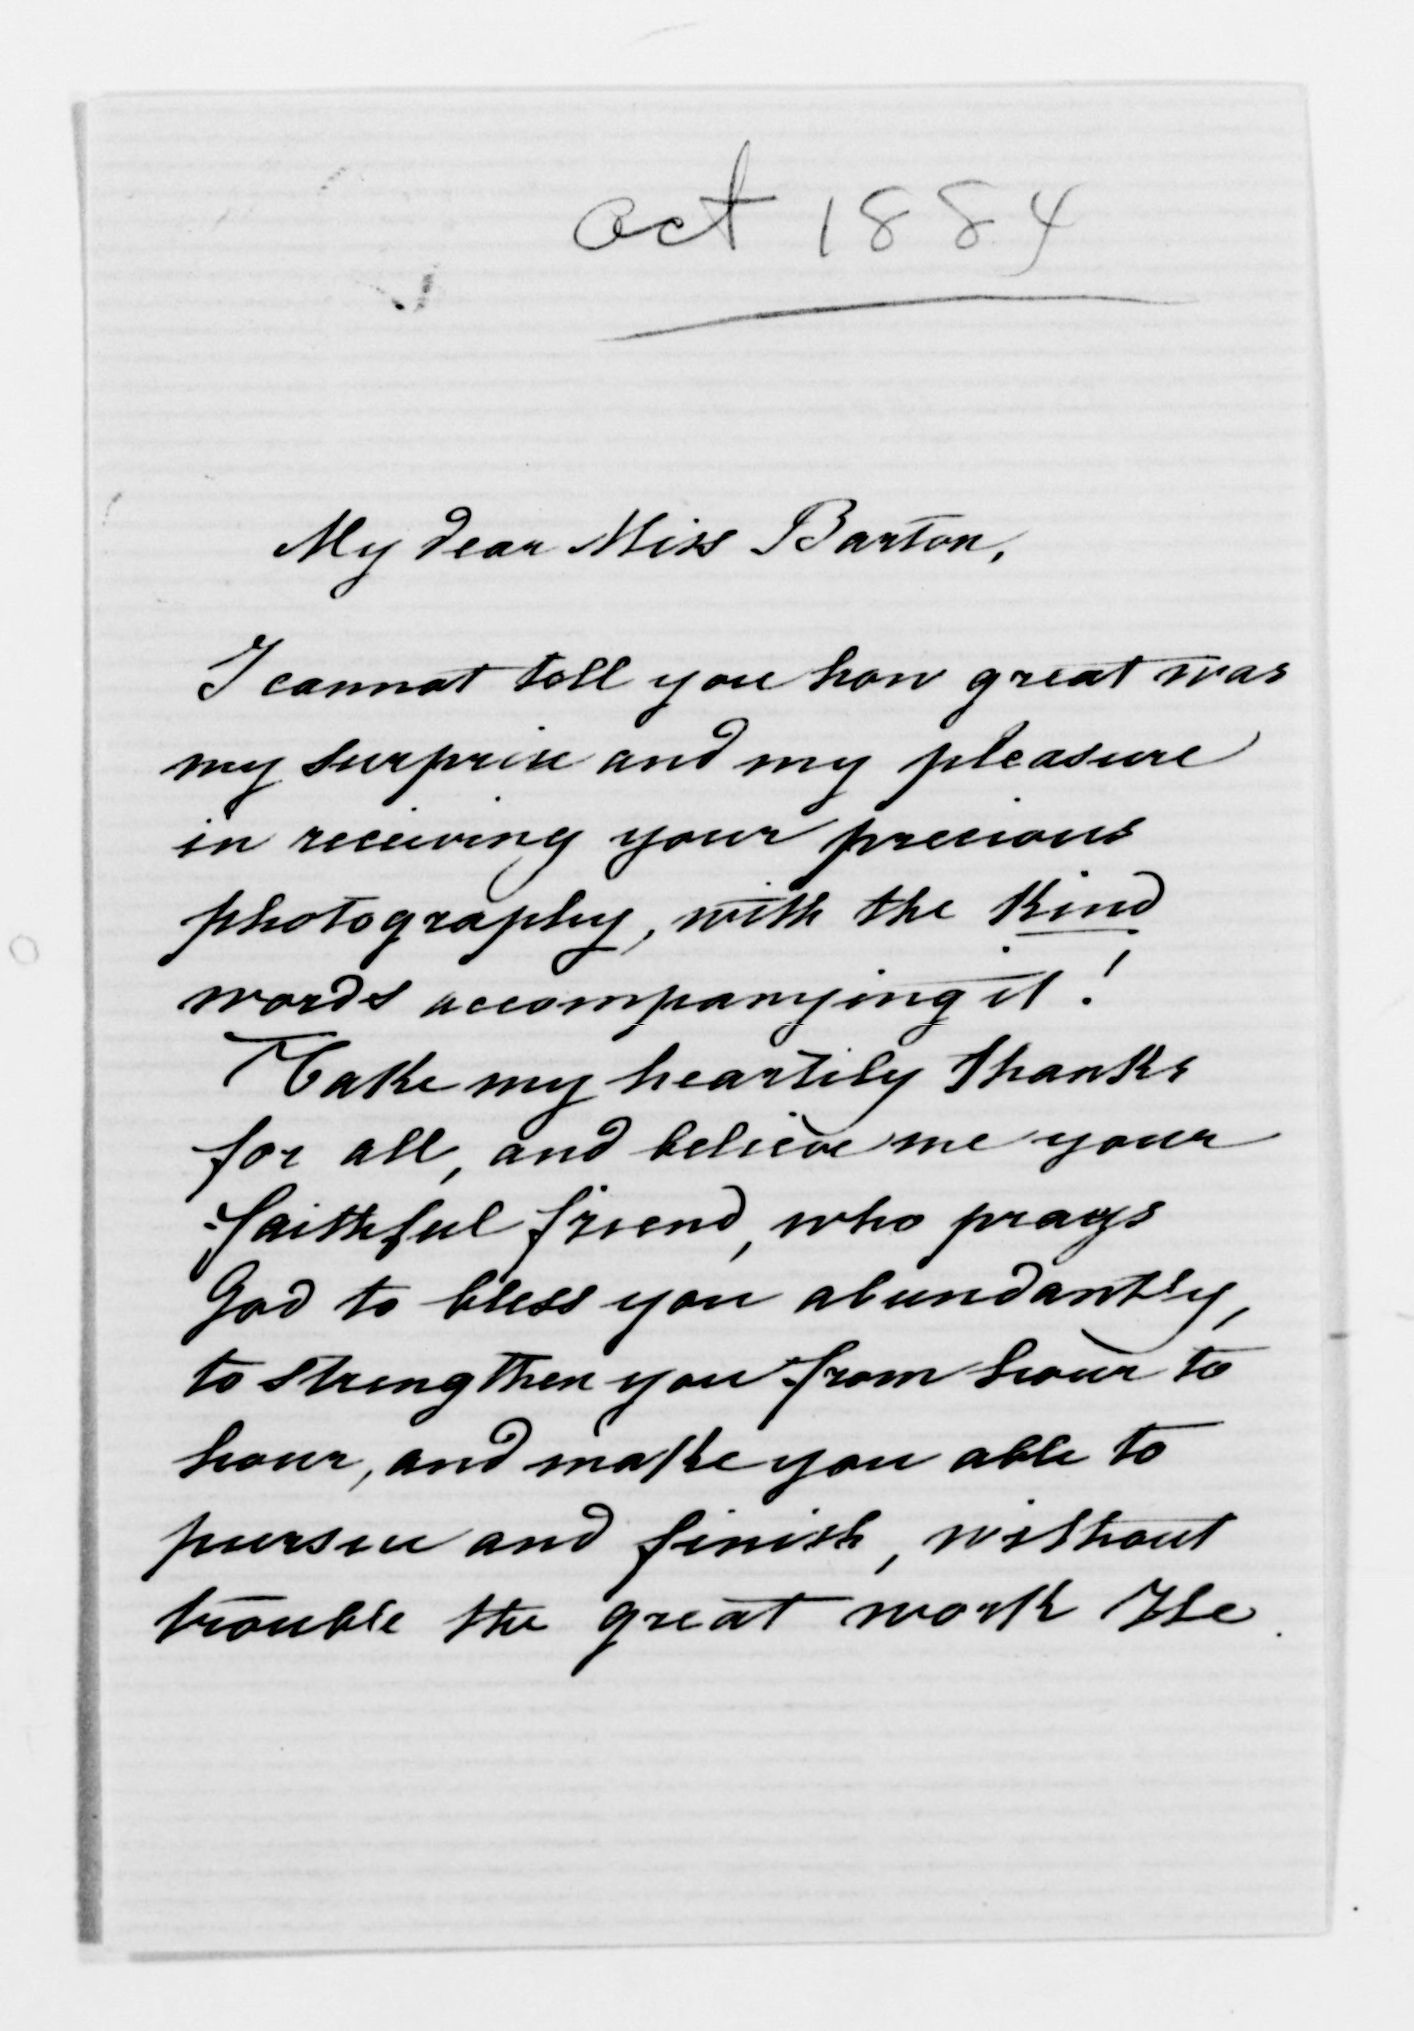 Oct 1884
My dear Miss Barton,
I cannot tell you how great was
my surprise and my pleasure
in receiving your precious
photography, with the kind
words accompanying it!
Take my heartily thanks
for all, and believe me your
faithful friend, who prays
God to bless you abundantly,
to strengthen you from hour to
hour, and make you able to
pursue and finish, without
trouble the great work He